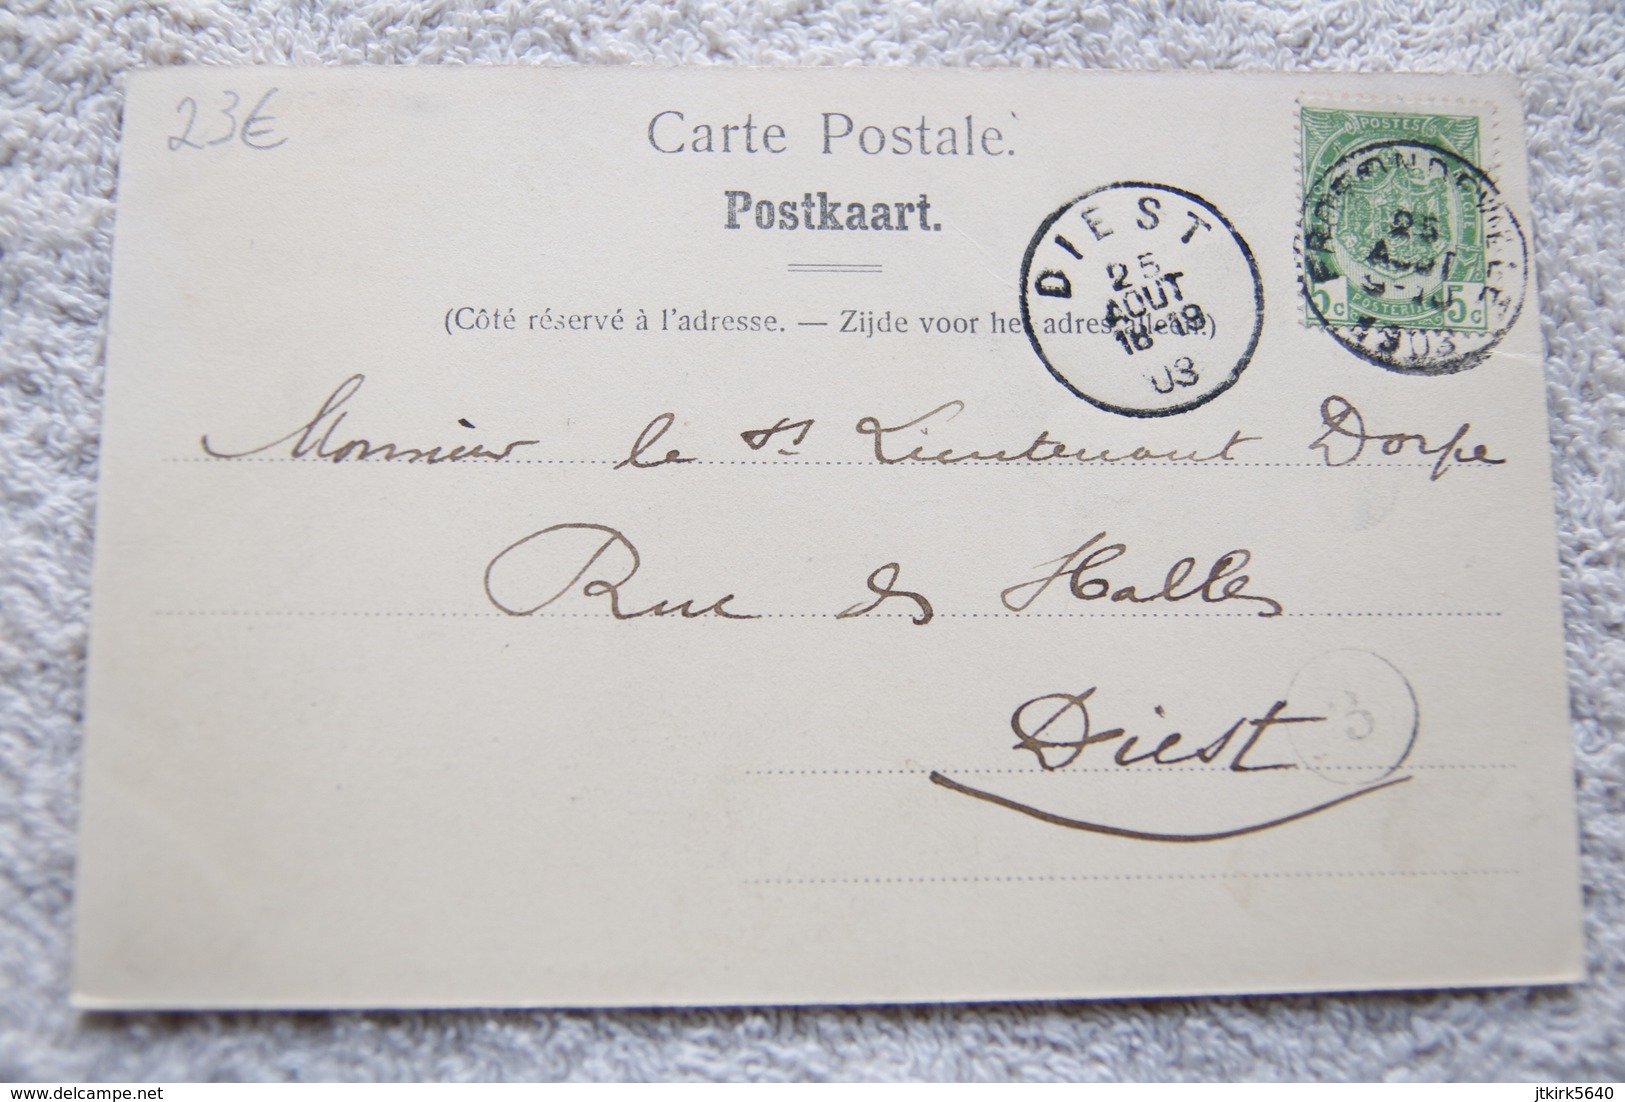 23€
Carte Postale.
Postkaart.
(Côté réservé à l'adresse. — Zijde voor het adres alleen.)
DIEST
25
AOUT
18-19
03
POSTES
25
AOUT
1903
5c 5c
Monsieur le Lieutenant Dorpe
Rue des Halles
Diest
3
www.delcampe.net
jtkirk5640